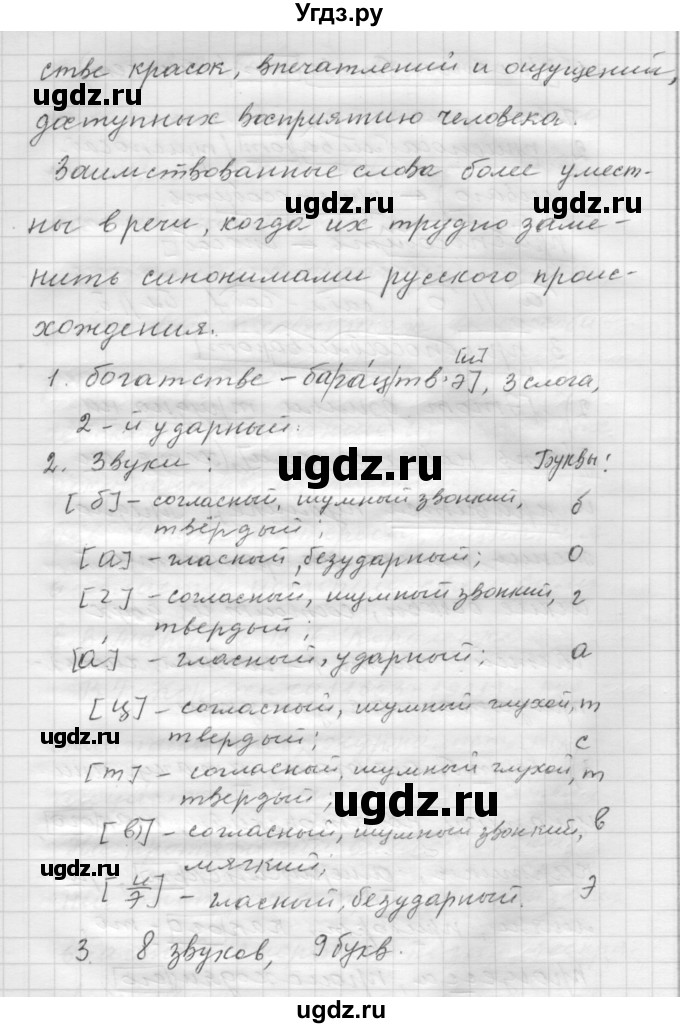 Угдз.ру
стве красок, впечатлений и ощущений,
ugdz.ru
ugdz.ru
доступных восприятию человека.
Заимствованные слова более умест-
ugdz.ru
ugdz.ru
ны в речи, когда их трудно заме-
нить синонимами русского проис-
хождения.
1. богатстве – ба/га́/ц/тв'э], [и] 3 слога,
ugdz.ru
ugdz.ru
2-й ударный.
2. Звуки: Буквы:
ugdz.ru
[б] – согласный, шумный звонкий, б
твёрдый;
[а] – гласный, безударный; о
[г] – согласный, шумный звонкий, г
твердый;
[а́] – гласный, ударный; а
[ц] – согласный, шумный глухой, т
ugdz.ru
твердый; с
ugdz.ru
[т] – согласный, шумный глухой, т
твердый;
ugdz.ru
[в'] – согласный, шумный звонкий, в
мягкий;
[и/э] – гласный, безударный. э
3. 8 звуков, 9 букв.
ugdz.ru
ugdz.ru